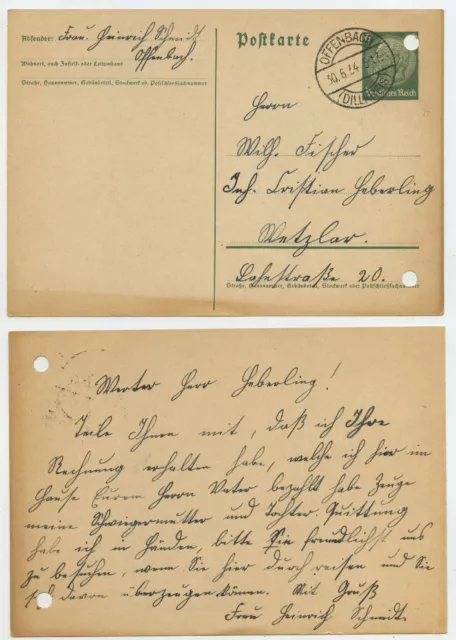 Absender: Frau Heinrich Schmidt
Offenbach.
Wohnort, auch Zustell- oder Leitpostamt
Straße, Hausnummer, Gebäudeteil, Stockwerk od. Postschließfachnummer
Postkarte
OFFENBACH
30.6.34
(DILLKREIS)
Deutsches Reich
Herrn
Wilh. Fischer
Inh. Cristian Heberling
Wetzlar.
Lahnstraße 20.
Straße, Hausnummer, Gebäudeteil, Stockwerk oder Postschließfachnummer
Werter Herr Heberling!
Teile Ihnen mit, daß ich Ihre
Rechnung erhalten habe, welche ich hier im
Hause Eurem Herrn Vater bezahlt habe Zeuge
meine Schwiegermutter und Tochter. Quittung
habe ich in Händen, bitte Sie freundlichst uns
zu besuchen, wenn Sie hier durch reisen und Sie
sich davon überzeugen können. Mit Gruß
Frau Heinrich Schmidt.